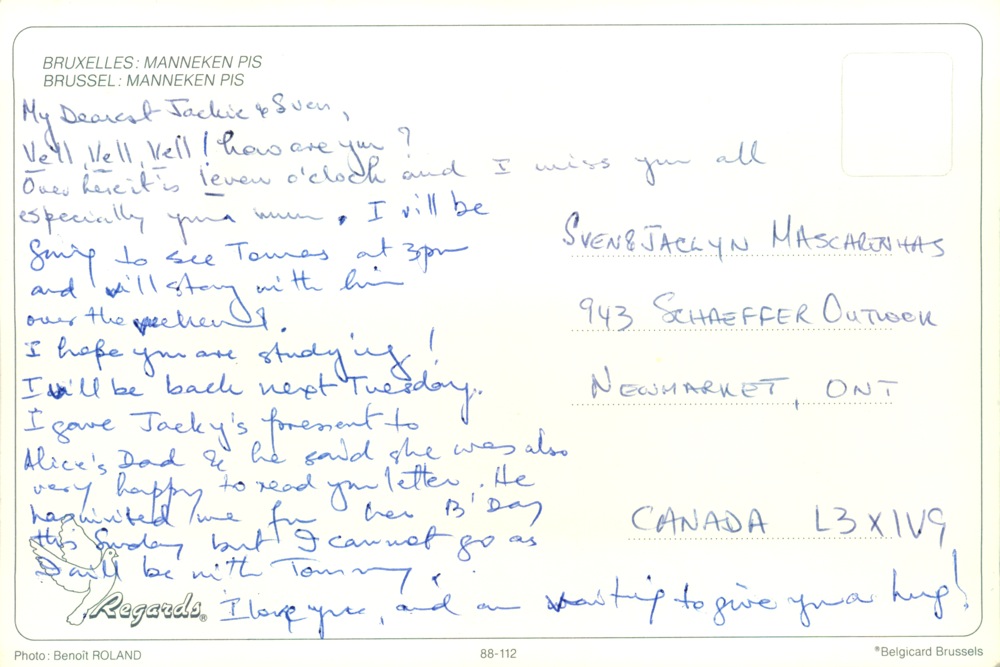 BRUXELLES: MANNEKEN PIS
BRUSSEL: MANNEKEN PIS
My Dearest Jackie & Sven,
Vell, Vell, Vell! how are you?
Over here it is 1even o'clock and I miss you all
especially your mum. I vill be
going to see Tomas at 3pm
and vill stay with him
over the veekend.
I hope you are studying!
I vill be back next Tuesday.
I gave Jacky's present to
Alice's Dad & he said she was also
very happy to read your letter. He
has invited me for her B'Day
this Sunday but I cannot go as
I will be with Tommy.
I love you, and am vaiting to give you a hug!
SVEN & JACLYN MASCARENHAS
943 SCHAEFFER OUTLOOK
NEWMARKET, ONT
CANADA L3X1V9
Regards®
Photo: Benoît ROLAND
88-112
®Belgicard Brussels